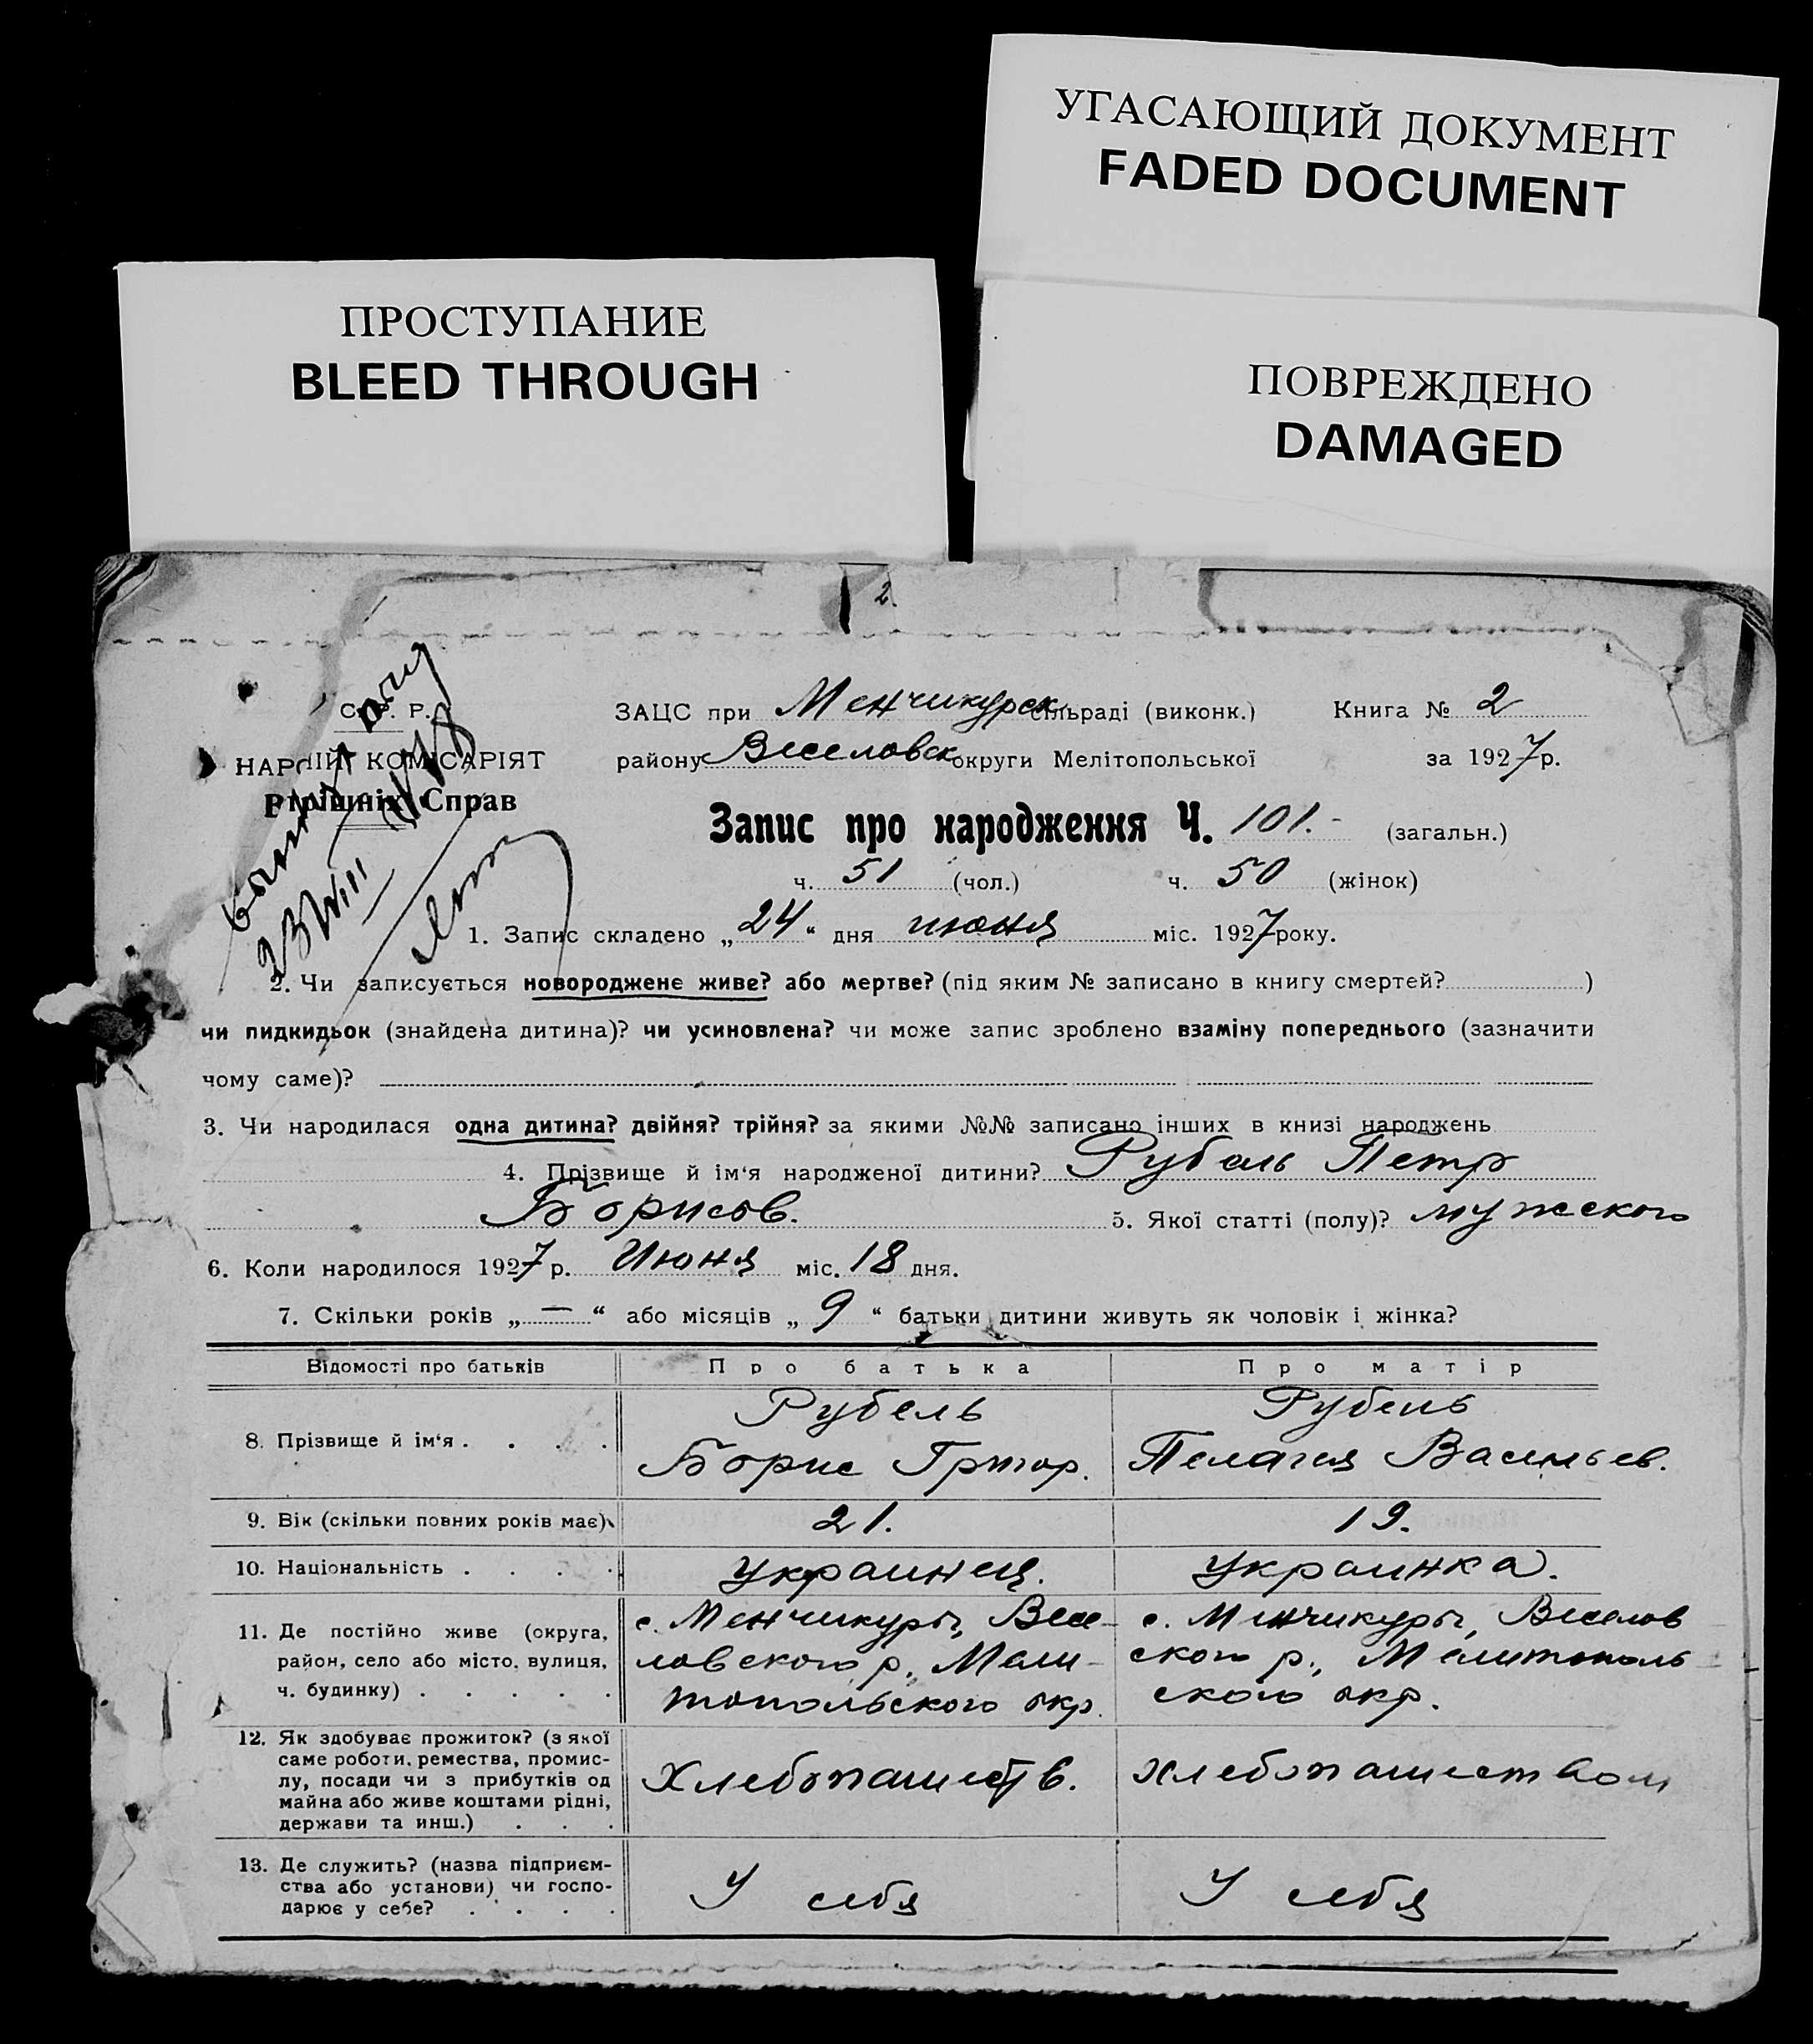 УГАСАЮЩИЙ ДОКУМЕНТ
FADED DOCUMENT
ПРОСТУПАНИЕ
BLEED THROUGH
ПОВРЕЖДЕНО
DAMAGED
2.
ЗАЦС при Менчикурск. сільраді (виконк.) Книга № 2
НАР КОМІСАРІЯТ
району Веселовск округи Мелітопольської за 1927 р.
Справ
Запис про народження Ч. 101.- (загальн.)
ч. 51 (чол.) ч. 50 (жінок)
23 VIII
1. Запис складено „24“ дня июня міс. 1927 року.
2. Чи записується новороджене живе? або мертве? (під яким № записано в книгу смертей? )
чи пидкидьок (знайдена дитина)? чи усиновлена? чи може запис зроблено взаміну попереднього (зазначити
чому саме)?
3. Чи народилася одна дитина? двійня? трійня? за якими №№ записано інших в книзі народжень
4. Прізвище й ім‘я народженої дитини? Рубель Петр
Борисов. 5. Якої статті (полу)? мужского
6. Коли народилося 1927 р. Июня міс. 18 дня.
7. Скільки років „—“ або місяців „9“ батьки дитини живуть як чоловік і жінка?
Відомості про батьків Про батька Про матір
8. Прізвище й ім‘я . . . .
Рубель
Борис Григор.
Рубель
Пелагея Васильев.
9. Вік (скільки повних років має) 21. 19.
10. Національність . . . . украинец. украинка.
11. Де постійно живе (округа,
район, село або місто, вулиця,
ч. будинку) . . . . .
с. Менчикуры, Весе-
ловского р., Мели-
топольского окр.
с. Менчикуры, Веселов
ского р., Мелитополь
ского окр.
12. Як здобуває прожиток? (з якої
саме роботи, ремества, промис-
лу, посади чи з прибутків од
майна або живе коштами рідні,
держави та инш.) . . .
Хлебопашеств.
хлебопашеством
13. Де служить? (назва підприєм-
ства або установи) чи госпо-
дарює у себе? . . . .
У себя
У себя